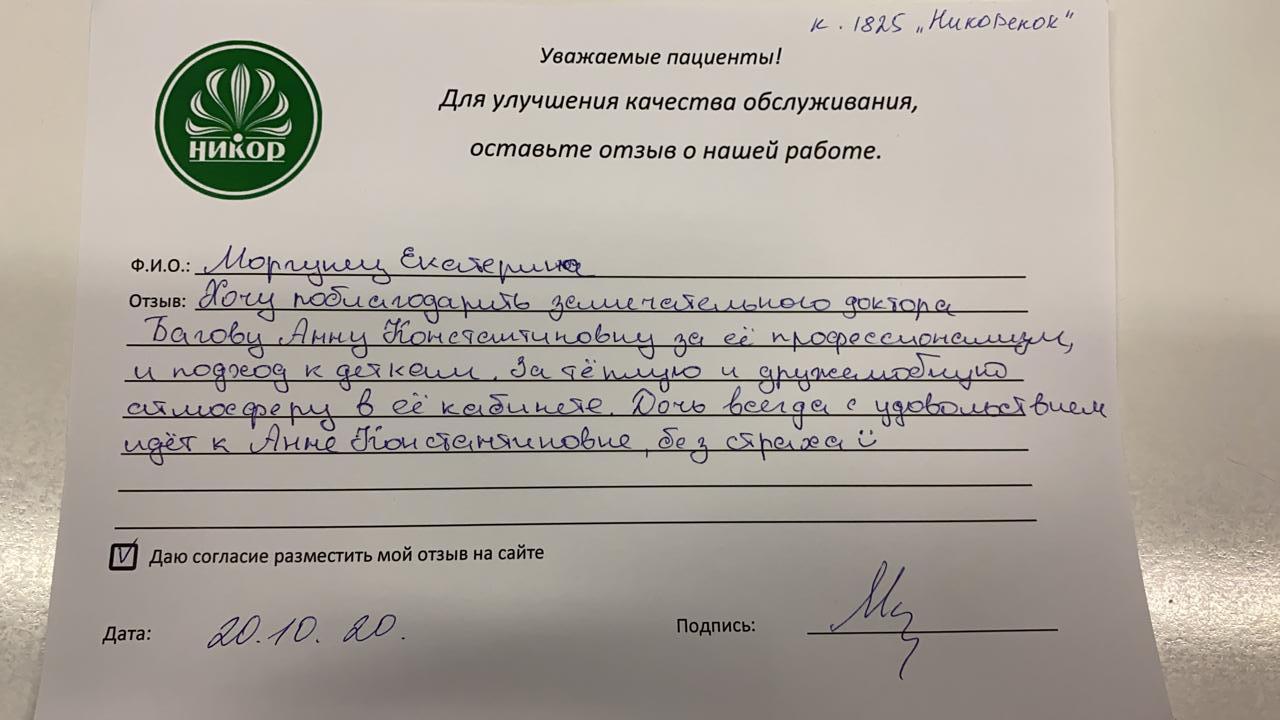 к. 1825 „Никоренок"
Уважаемые пациенты!
Для улучшения качества обслуживания,
оставьте отзыв о нашей работе.
НИКОР
Ф.И.О.: Моргунец Екатерина
Отзыв: Хочу поблагодарить замечательного доктора
Багову Анну Константиновну за её профессионализм,
и подход к деткам. За тёплую и дружелюбную
атмосферу в её кабинете. Дочь всегда с удовольствием
идёт к Анне Константиновне, без страха ü
V Даю согласие разместить мой отзыв на сайте
Дата: 20.10.20.
Подпись: